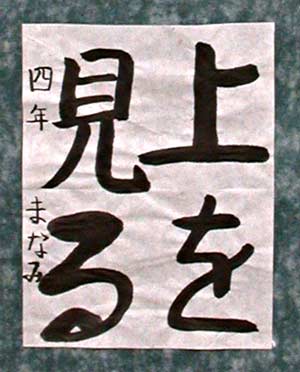 上を
見る
四年 まなみ